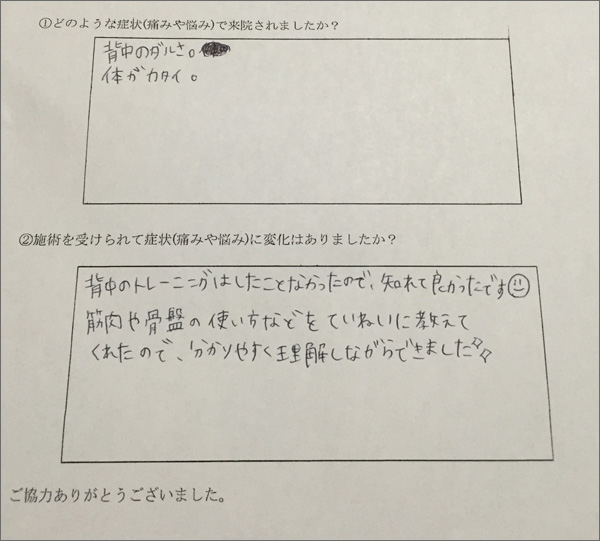 ①どのような症状(痛みや悩み)で来院されましたか？
背中のダルさ。
体がカタイ。
②施術を受けられて症状(痛みや悩み)に変化はありましたか？
背中のトレーニングはしたことなかったので、知れて良かったです
筋肉や骨盤の使い方などをていねいに教えて
くれたので、分かりやすく理解しながらできました
ご協力ありがとうございました。